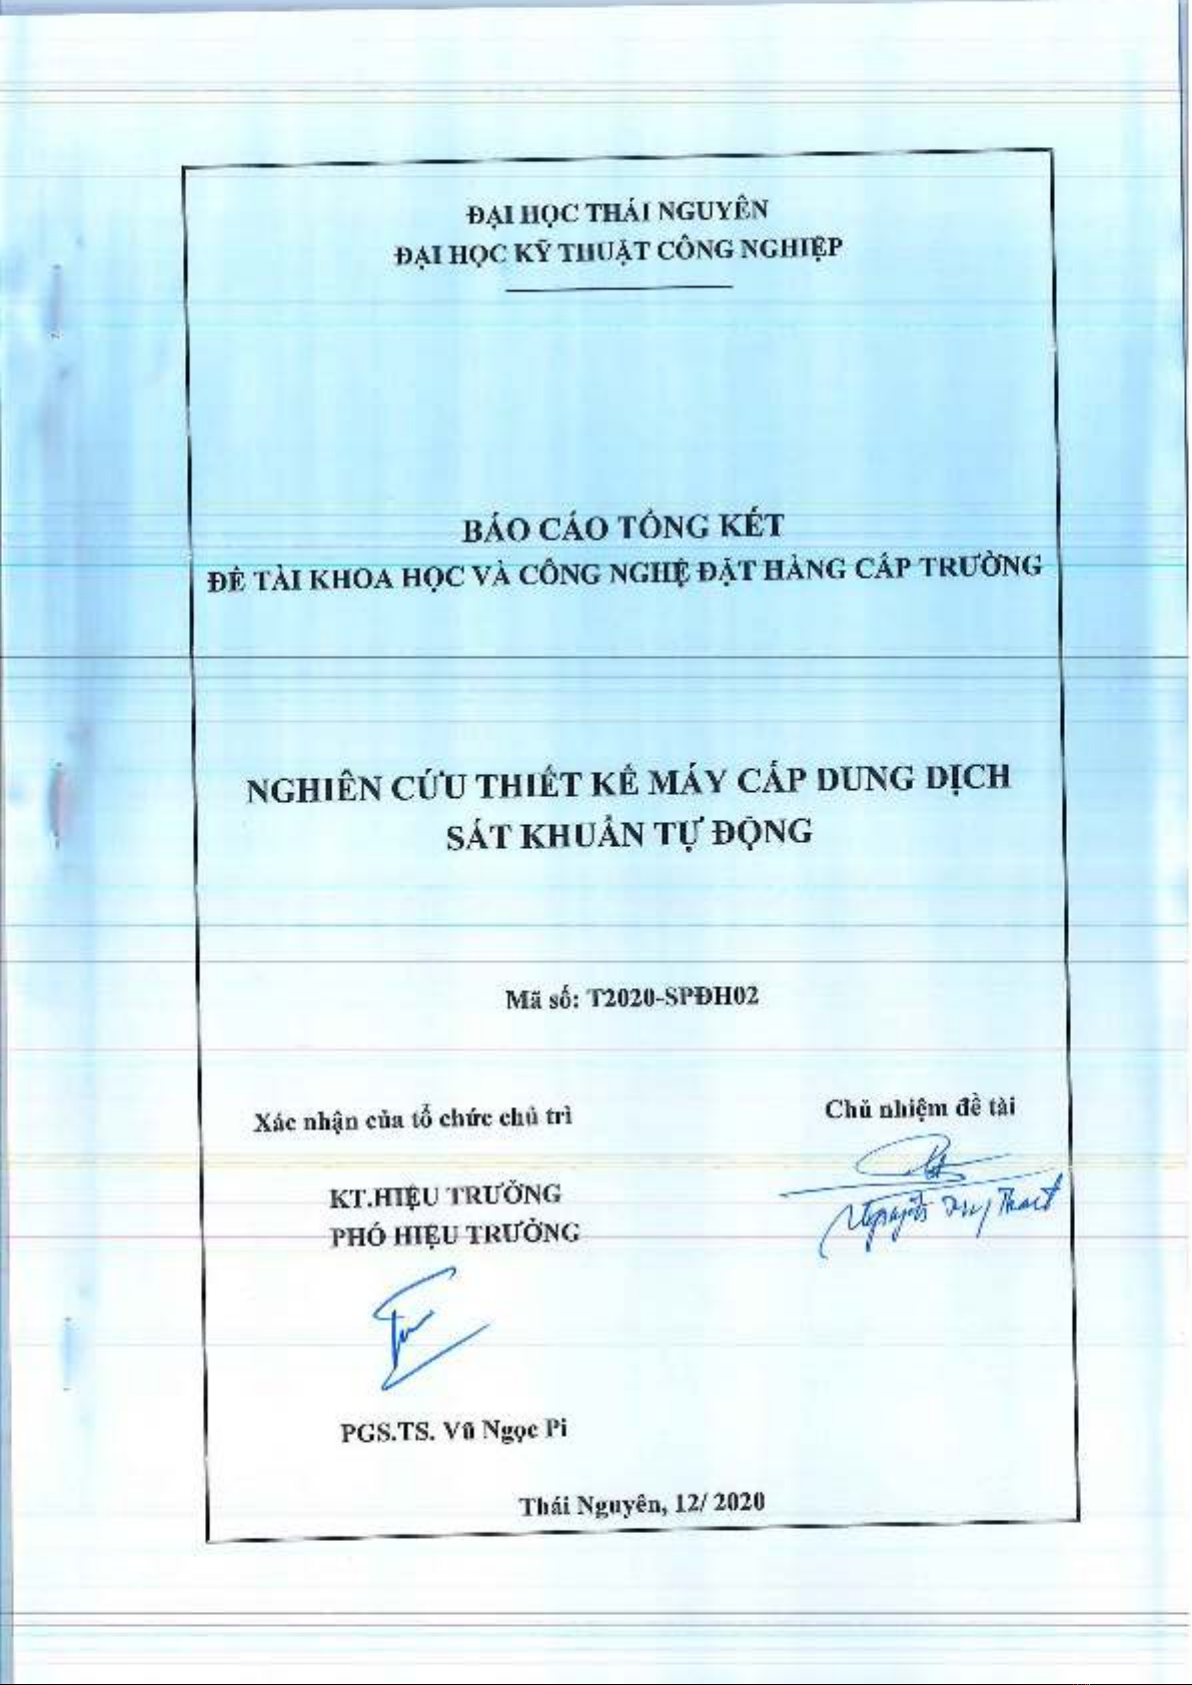 ĐẠI HỌC THÁI NGUYÊN
ĐẠI HỌC KỸ THUẬT CÔNG NGHIỆP
BÁO CÁO TỔNG KẾT
ĐỀ TÀI KHOA HỌC VÀ CÔNG NGHỆ ĐẶT HÀNG CẤP TRƯỜNG
NGHIÊN CỨU THIẾT KẾ MÁY CẤP DUNG DỊCH
SÁT KHUẨN TỰ ĐỘNG
Mã số: T2020-SPĐH02
Xác nhận của tổ chức chủ trì
KT.HIỆU TRƯỞNG
PHÓ HIỆU TRƯỞNG
PGS.TS. Vũ Ngọc Pi
Chủ nhiệm đề tài
Nguyễn
Thái Nguyên, 12/ 2020